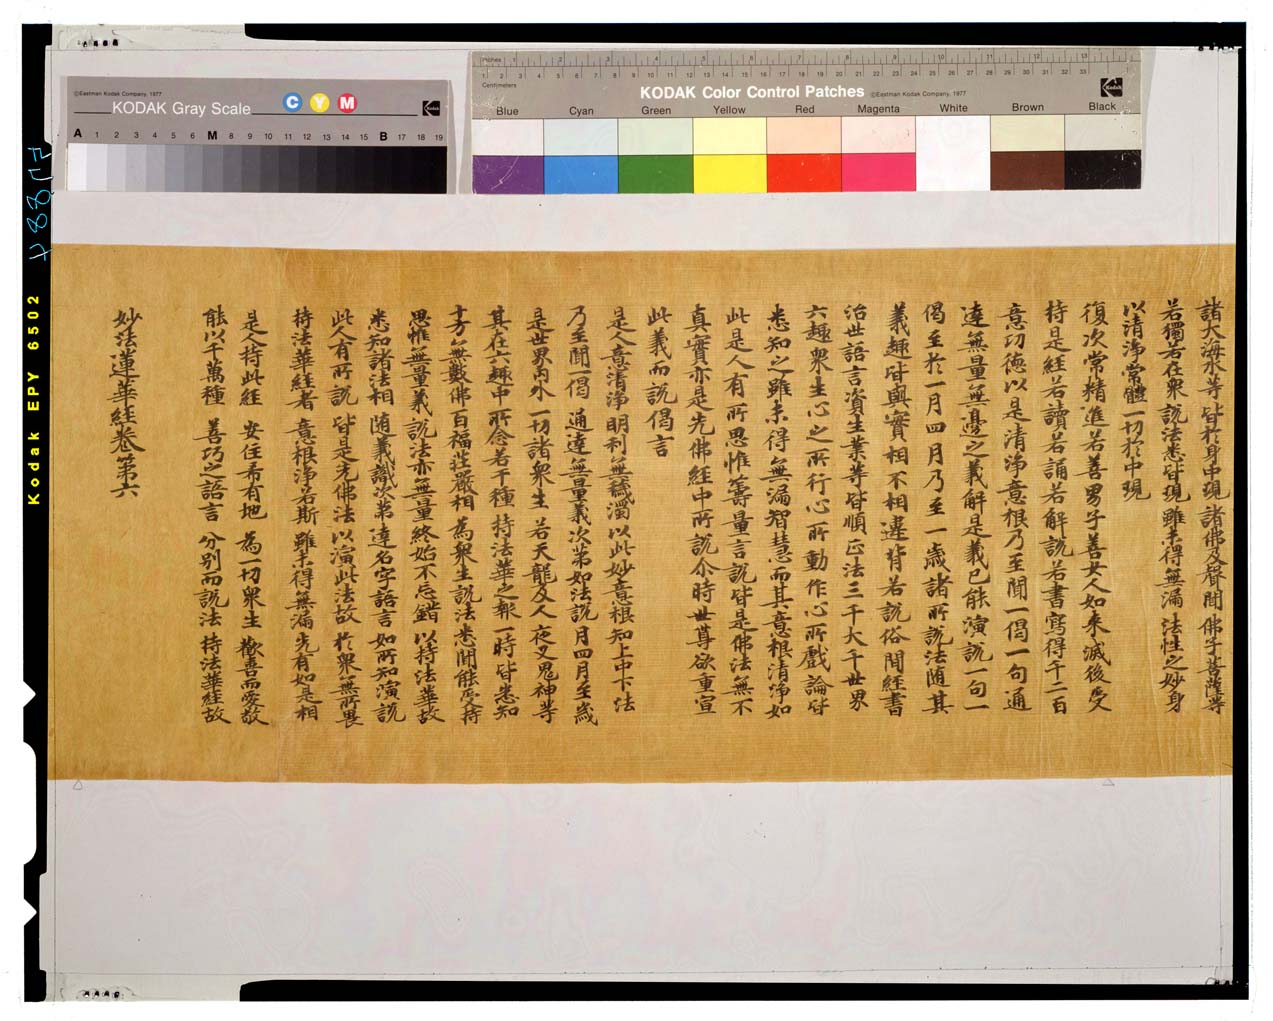 ©Eastman Kodak Company, 1977
KODAK Gray Scale
C Y M
Kodak
A 1 2 3 4 5 6 M 8 9 10 11 12 13 14 15 B 17 18 19
Inches 1 2 3 4 5 6 7 8 9 10 11 12 13
1 2 3 4 5 6 7 8 9 10 11 12 13 14 15 16 17 18 19 20 21 22 23 24 25 26 27 28 29 30 31 32 33
Centimetres
KODAK Color Control Patches
©Eastman Kodak Company, 1977
Kodak
Blue Cyan Green Yellow Red Magenta White Brown Black
Kodak EPY 6502
諸大海水等皆於身中現諸佛及聲聞佛子菩薩等
若獨若在衆說法悉皆現雖未得無漏法性之妙身
以清淨常體一切於中現
復次常精進若善男子善女人如來滅後受
持是經若讀若誦若解說若書寫得千二百
意功德以是清淨意根乃至聞一偈一句通
達無量無邊之義解是義已能演說一句一
偈至於一月四月乃至一歲諸所說法随其
義趣皆與實相不相違背若說俗間經書
治世語言資生業等皆順正法三千大千世界
六趣衆生心之所行心所動作心所戲論皆
悉知之雖未得無漏智慧而其意根清淨如
此是人有所思惟籌量言說皆是佛法無不
真實亦是先佛經中所說尒時世尊欲重宣
此義而說偈言
是人意清淨 明利無穢濁 以此妙意根 知上中下法
乃至聞一偈 通達無量義 次第如法說 月四月至歲
是世界內外 一切諸衆生 若天龍及人 夜叉鬼神等
其在六趣中 所念若干種 持法華之報 一時皆悉知
十方無數佛 百福莊嚴相 為衆生說法 悉聞能受持
思惟無量義 說法亦無量 終始不忘錯 以持法華故
悉知諸法相 随義識次第 達名字語言 如所知演說
此人有所說 皆是先佛法 以演此法故 於衆無所畏
持法華經者 意根淨若斯 雖未得無漏 先有如是相
是人持此經 安住希有地 為一切衆生 歡喜而愛敬
能以千萬種 善巧之語言 分別而說法 持法華經故
妙法蓮華經卷第六